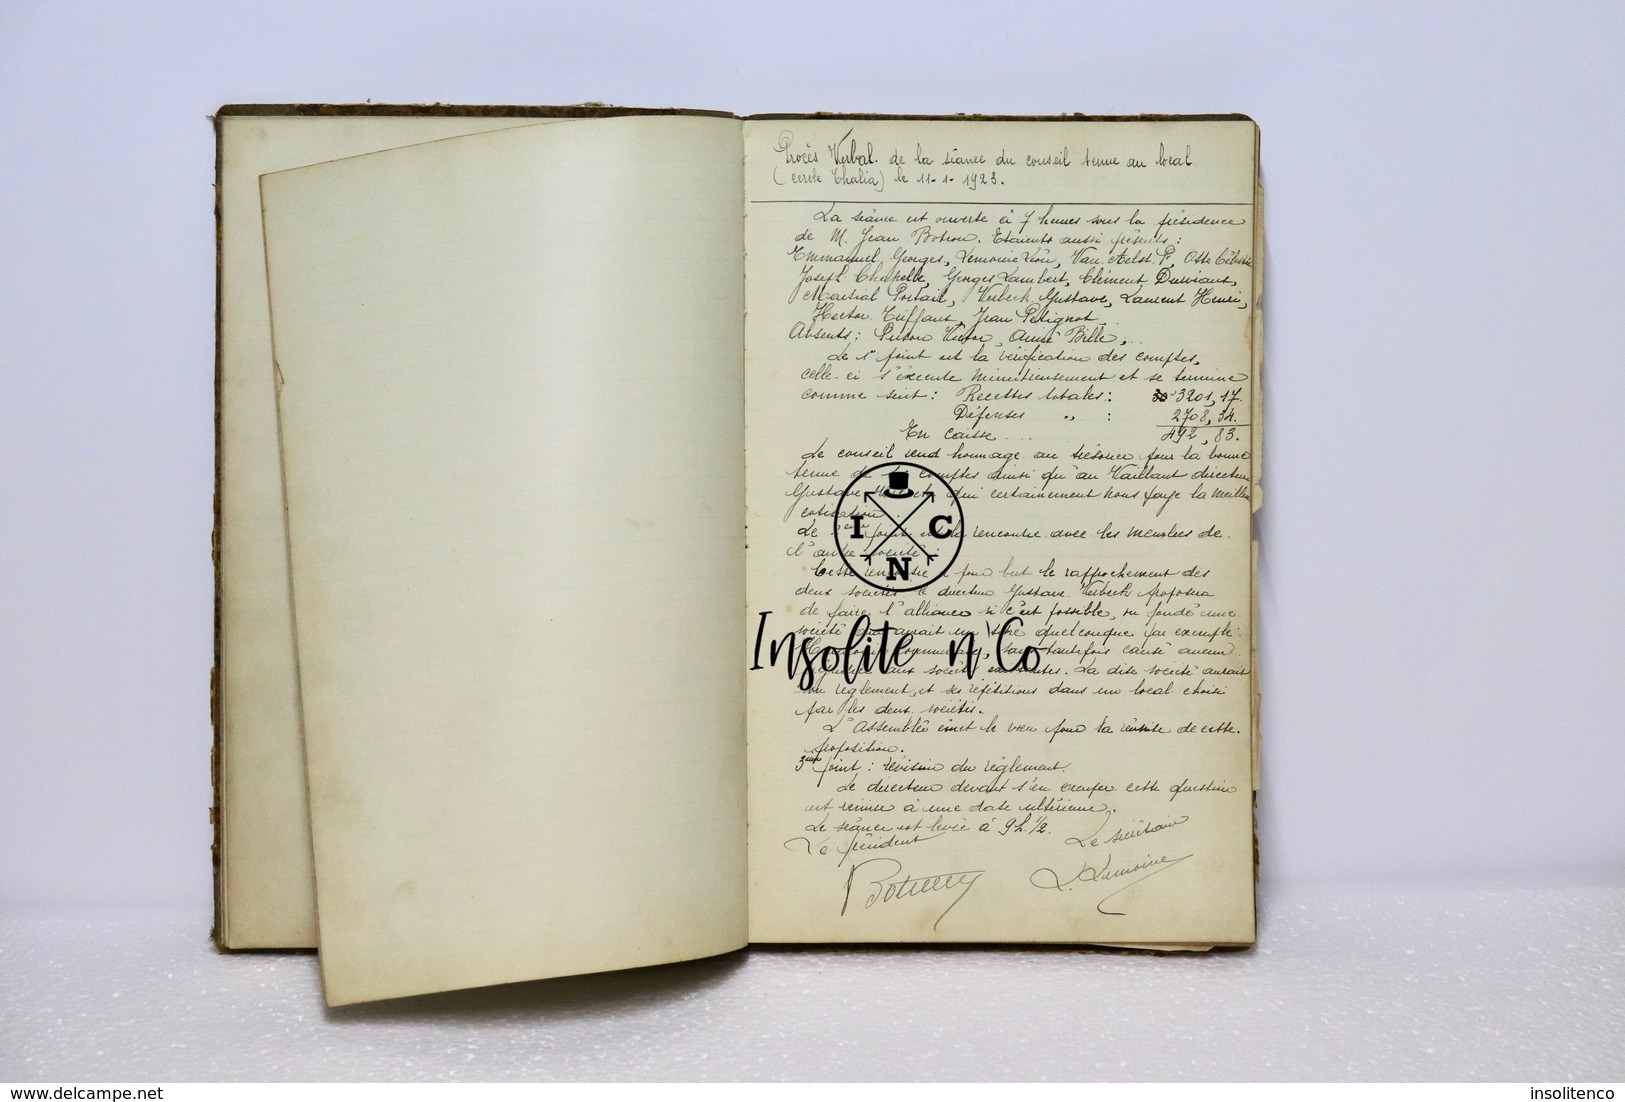 Procès Verbal. de la séance du conseil tenue au local
(cercle Thalia) le 11-1-1923.
La séance est ouverte à 7 heures sous la présidence
de M. Jean Botron. Etaients aussi présents :
Emmanuel Georges, Lemoine Léon, Van Aelst P, Otte Célestin
Joseph Chapelle, Georges Lambert, Clément
Martial Portail, Verbeck Gustave, Laurent Henri,
Hector Tuffaut, Jean Petignot
Absents : Victor, Aimé Bille,
Le 1er point est la vérification des comptes,
celle-ci s'éxecute minutieusement et se termine
comme suit : Recettes totales : 3201,17.
Dépenses " : 2708,34.
En caisse ... 492,83.
Le conseil rend hommage au trésorier pour la bonne
tenue de comptes ainsi qu'au Vaillant directeur
Gustave qui certainement nous forge la meilleure
cotisation.
Le point la rencontre avec les membres de
l'autre société :
Cette a pour but le rapprochement des
deux sociétés le directeur Gustave Verbeck proposera
de faire l'alliance si c'est possible, ou fondé une
société qui aurait un titre quelconque par exemple
sans toutefois causé aucun
aux société La dite société aurait
son règlement, et ses répétitions dans un local choisi
par les deux sociétés.
L'Assemblée émet le voeu pour la réussite de cette
proposition.
3ème point : révision du règlement.
Le directeur devant s'en occuper cette question
est remise à une date ultérieure.
La séance est levée à 9h. 1/2.
Le président Le secrétaire
L. Lemoine
I C
N
Insolite n' Co
www.delcampe.net insolitenco